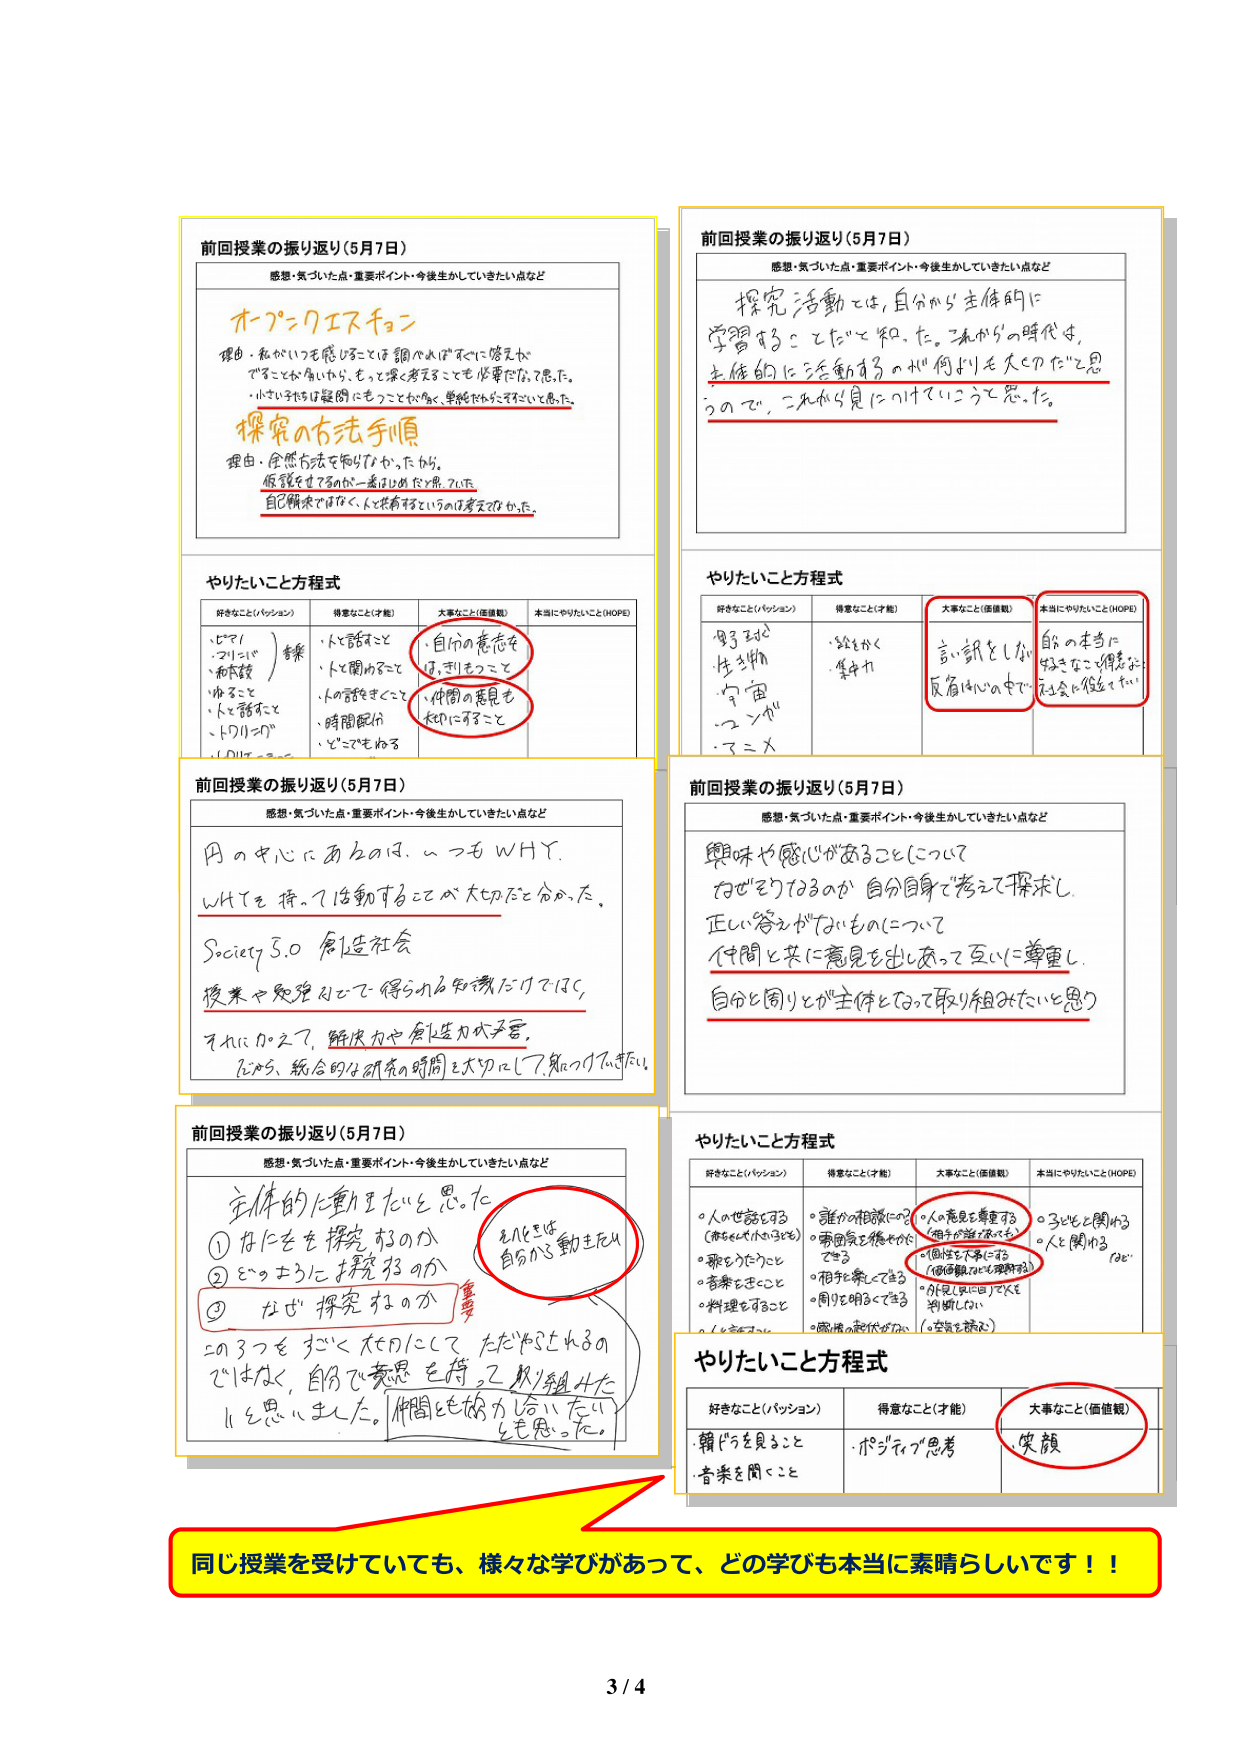 前回授業の振り返り(5月7日)
感想・気づいた点・重要ポイント・今後生かしていきたい点など
オープンクエスチョン
理由・私がいつも感じることは調べればすぐに答えが
でることが多いから、もっと深く考えることも必要だなって思った。
・小さい子たちは疑問にもつことが多く、単純だからこそすごいと思った。
探究の方法手順
理由・全然方法を知らなかったから。
仮説を立てるのが一番はじめだと思っていた
自己解決ではなく、人と共有するというのは考えてなかった。
やりたいこと方程式
好きなこと(パッション) 得意なこと(才能) 大事なこと(価値観) 本当にやりたいこと(HOPE)
・ピアノ
・和太鼓
音楽
・ねること
・人と話すこと
・トワリング
・人と話すこと
・人と関わること
・人の話をきくこと
・時間配分
・どこでもねる
・自分の意志を
はっきりもつこと
・仲間の意見も
大切にすること
前回授業の振り返り(5月7日)
感想・気づいた点・重要ポイント・今後生かしていきたい点など
探究活動とは、自分から主体的に
学習することだと知った。これからの時代は、
主体的に活動するのが何よりも大切だと思
うので、これから身につけていこうと思った。
やりたいこと方程式
好きなこと(パッション) 得意なこと(才能) 大事なこと(価値観) 本当にやりたいこと(HOPE)
・生き物
・宇宙
・マンガ
・アニメ
・絵をかく
・集中力
言い訳をしない
反省は心の中で
自分の本当に
好きなこと得意なこ
社会に役立てたい
前回授業の振り返り(5月7日)
感想・気づいた点・重要ポイント・今後生かしていきたい点など
円の中心にあるのは、いつもWHY.
WHYを持って活動することが大切だと分かった。
Society 5.0 創造社会
授業や勉強などで得られる知識だけではなく,
それに加えて, 解決力や創造力が必要。
だから、統合的な研究の時間を大切にして身につけていきたい。
前回授業の振り返り(5月7日)
感想・気づいた点・重要ポイント・今後生かしていきたい点など
興味や感心があることについて
なぜそうなるのか 自分自身で考えて探求し
正しい答えがないものについて
仲間と共に意見を出しあって互いに尊重し
自分と周りとが主体となって取り組みたいと思う
やりたいこと方程式
好きなこと(パッション) 得意なこと(才能) 大事なこと(価値観) 本当にやりたいこと(HOPE)
。人の世話をする
(赤ちゃんや小さい子ども)
。歌をうたうこと
。音楽をきくこと
。料理をすること
。人と話すこと
。誰かの相談にのる
。雰囲気を穏やかに
できる
。相手を楽しくできる
。周りを明るくできる
。感情の起伏がない
。人の意見を尊重する
(相手が誰であっても)
。個性を大事にする
(価値観なども理解する)
。外見(見た目)で人を
判断しない
(。空気を読む)
。子どもと関わる
。人と関わる
など
前回授業の振り返り(5月7日)
感想・気づいた点・重要ポイント・今後生かしていきたい点など
主体的に動きたいと思った
それときは
自分から動きたい
① なにを探究するのか
② どのように探究するのか
③ なぜ探究するのか
重要
この3つをすごく大切にして ただやらされるの
ではなく、自分で意思を持って取り組みた
いと思いました。仲間とも協力し合いたい
とも思った。
やりたいこと方程式
好きなこと(パッション) 得意なこと(才能) 大事なこと(価値観)
・韓ドラを見ること ・ポジティブ思考 ・笑顔
・音楽を聞くこと
同じ授業を受けていても、様々な学びがあって、どの学びも本当に素晴らしいです!!
3 / 4